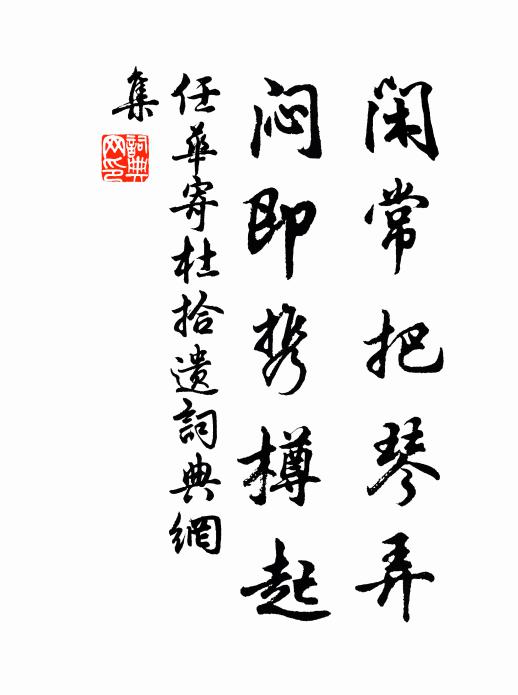 闲常把琴弄
闷即携樽起
任华寄杜拾遗詞典網
集
詞典
网印